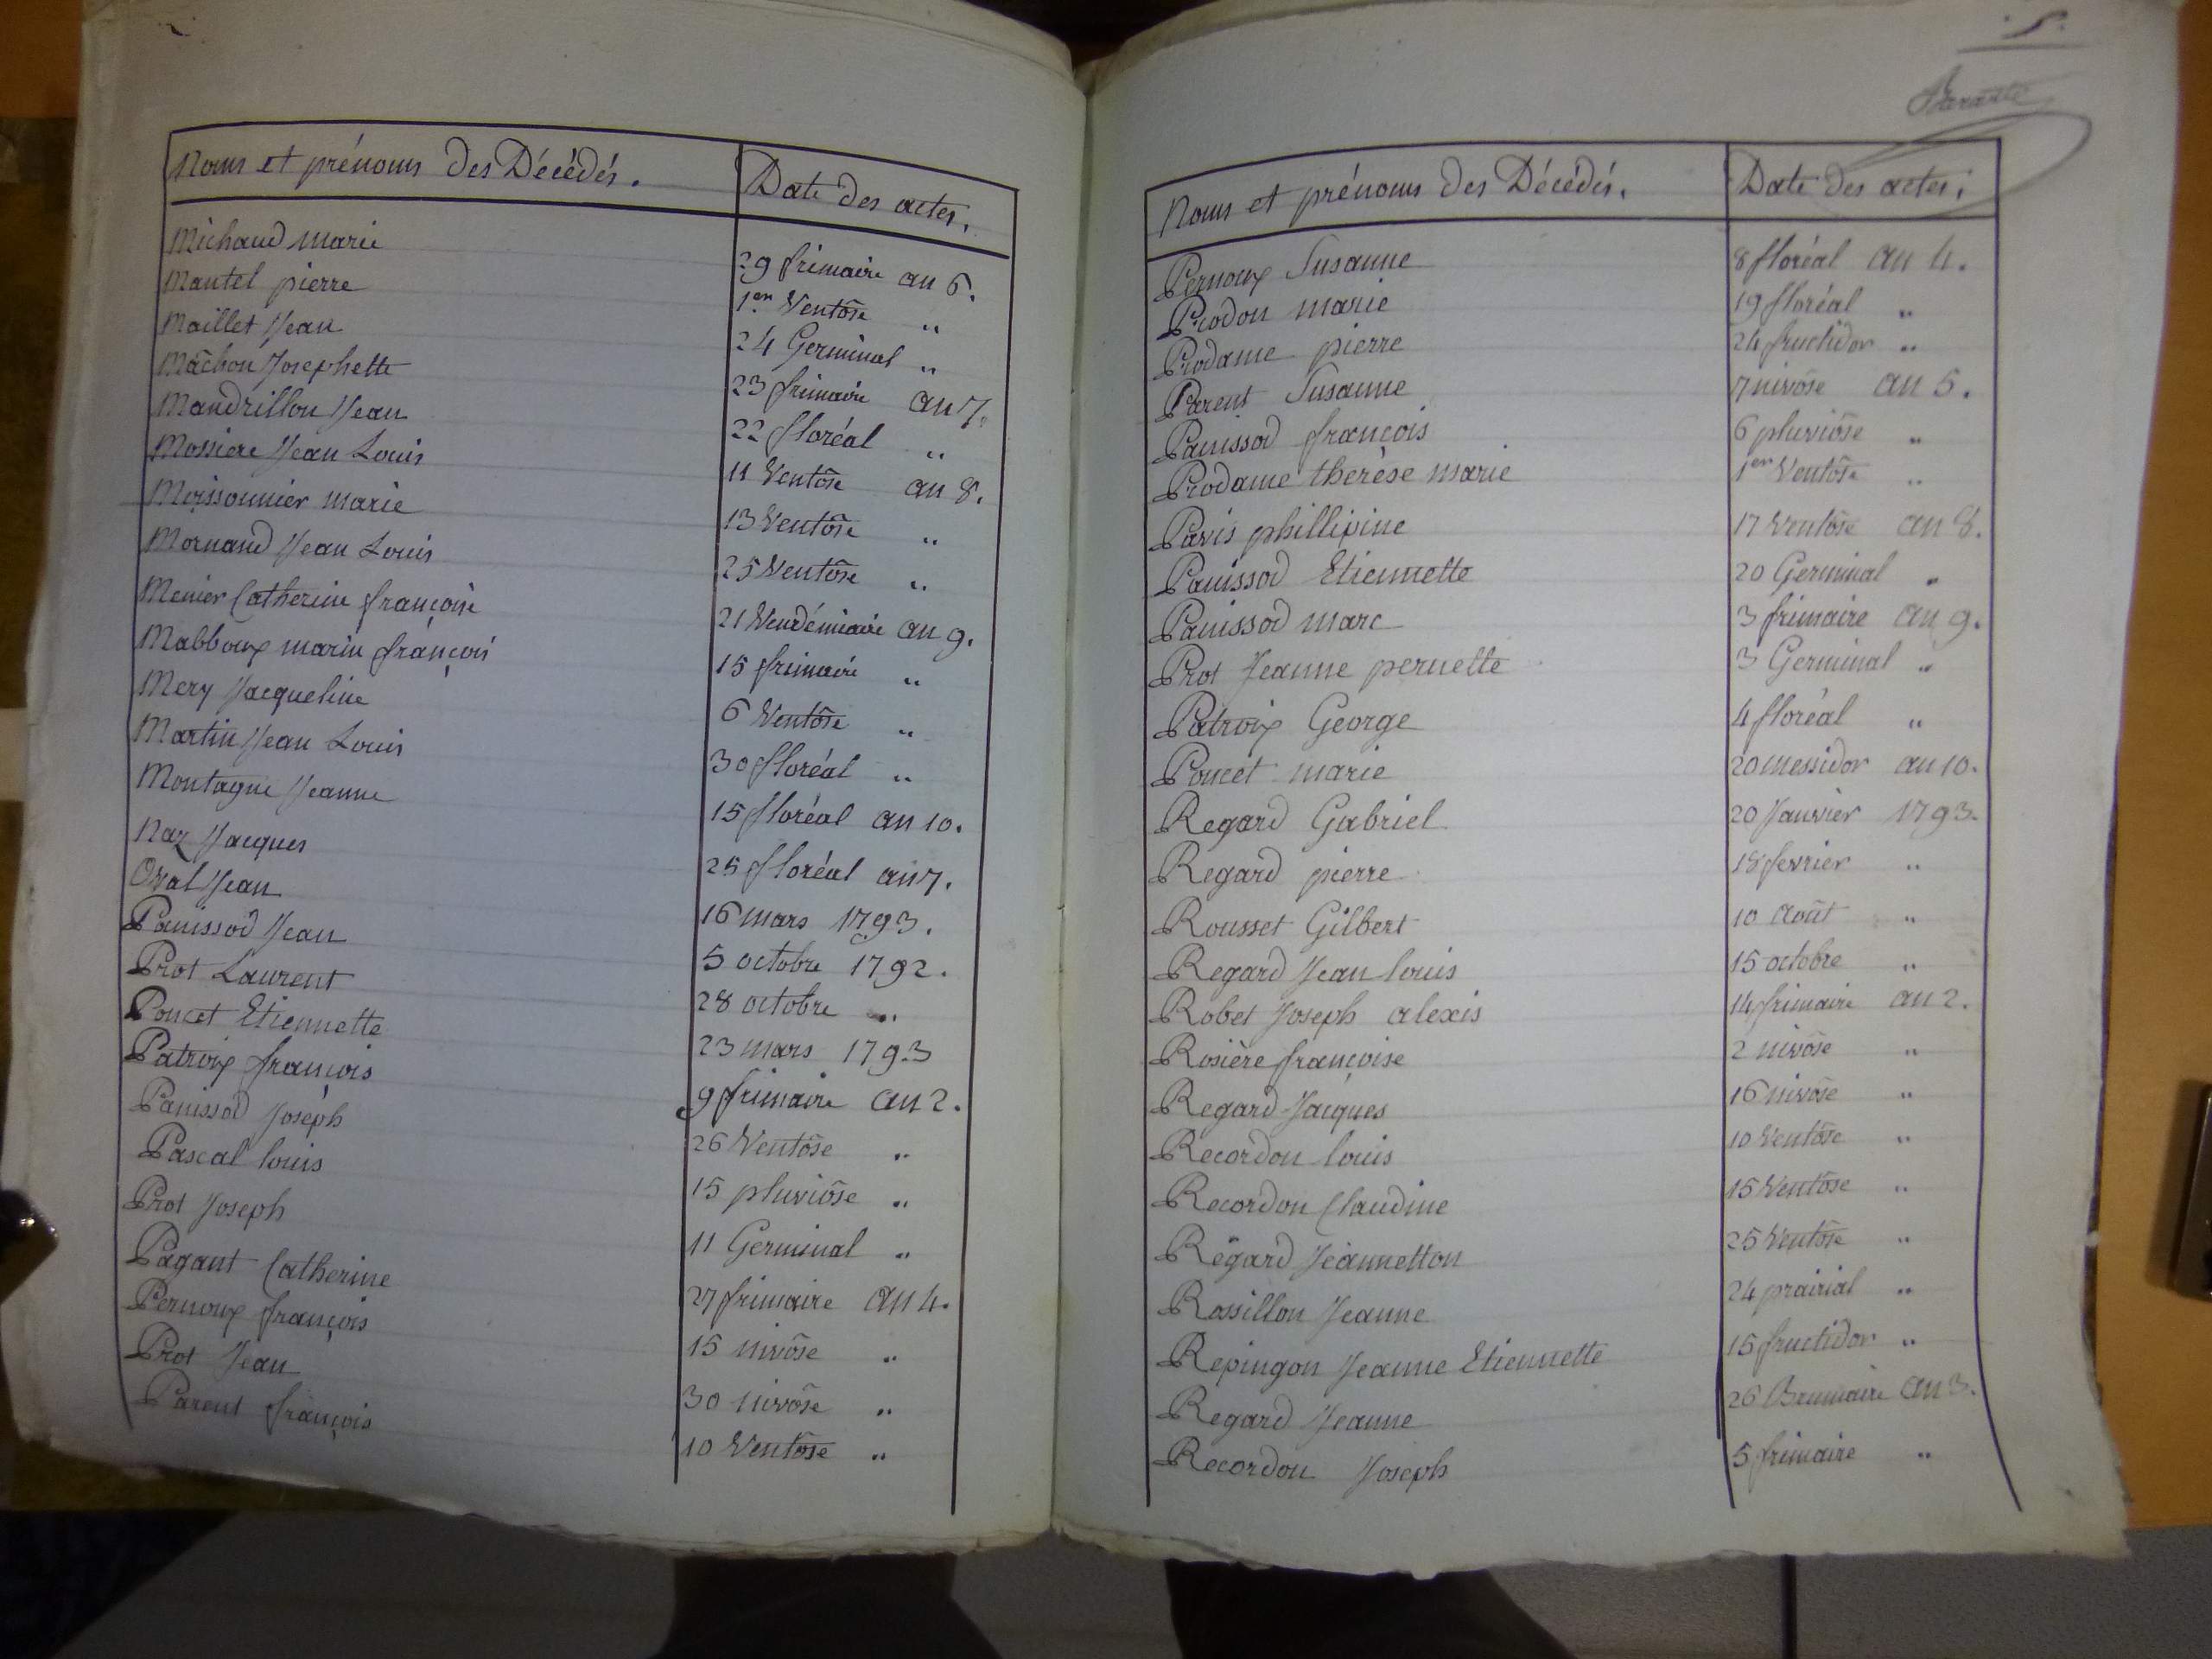 Noms et prénoms des Décédés. Date des actes.
Michaud marie 29 frimaire an 6.
Mantel pierre 1er Ventôse "
Maillet Jean 24 Germinal "
Mâchon Josephette 23 frimaire an 7.
Mandrillon Jean 22 floréal "
Mossiere Jean Louis 11 Ventôse an 8.
Moissonnier marie 13 Ventôse "
Mornand Jean Louis 25 Ventôse "
Menier Catherine françoise 21 Vendémiaire an 9.
Mabboux marin françois 15 frimaire "
Mery Jacqueline 6 Ventôse "
Martin Jean Louis 30 floréal "
Montagne Jeanne 15 floréal an 10.
Naz Jacques 25 floréal an 7.
Oval Jean 16 mars 1793.
Panissod Jean 5 octobre 1792.
Prot Laurent 28 octobre "
Poncet Etiennette 23 mars 1793
Patroix françois 9 frimaire an 2.
Panissod Joseph 26 Ventôse "
Pascal louis 15 pluviôse "
Prot Joseph 11 Germinal "
Pagant Catherine 27 frimaire an 4.
Pernoux françois 15 nivôse "
Prot Jean 30 nivôse "
Parent françois 10 Ventôse "
5.
Noms et prénoms des Décédés. Date des actes.
Pernoux Susanne 8 floréal an 4.
Prodon marie 19 floréal "
Prodame pierre 24 fructidor "
Parent Susanne 7 nivôse an 5.
Panissod françois 6 pluviôse "
Prodame thérèse marie 1er Ventôse "
Pavis phillipine 17 Ventôse an 8.
Panissod Etiennette 20 Germinal "
Panissod marc 3 frimaire an 9.
Prot Jeanne pernette 3 Germinal "
Patroix George 4 floréal "
Poncet marie 20 messidor an 10.
Regard Gabriel 20 Janvier 1793.
Regard pierre 18 fevrier "
Rousset Gilbert 10 Août "
Regard Jean louis 15 octobre "
Robet Joseph alexis 14 frimaire an 2.
Rosière françoise 2 nivôse "
Regard Jacques 16 nivôse "
Recordon louis 10 Ventôse "
Recordon Claudine 15 Ventôse "
Regard Jeannetton 25 Ventôse "
Rossillon Jeanne 24 prairial "
Repingon Jeanne Etiennette 15 fructidor "
Regard Jeanne 26 Brumaire an 3.
Recordon Joseph 5 frimaire "